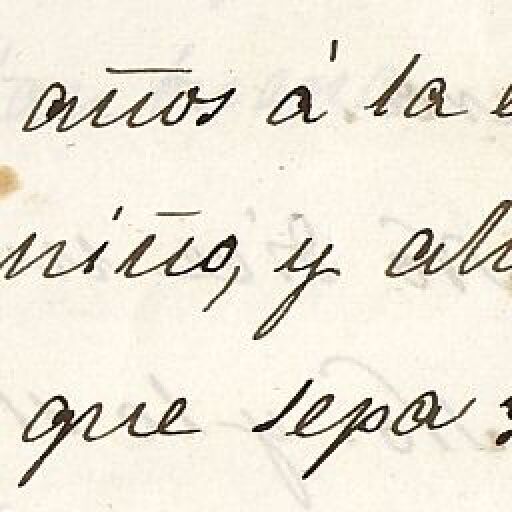 años á la
niño, y
que sepa